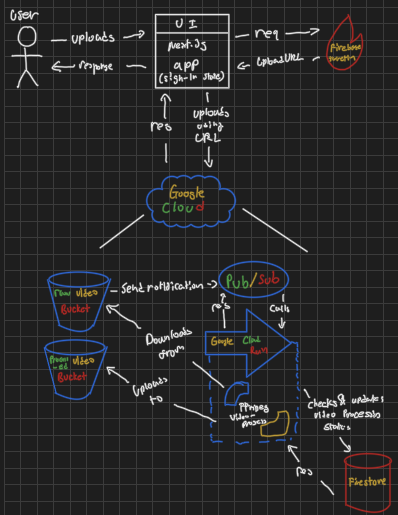 User
uploads
response
UI
Next.js
app
(sign-in state)
req
UploadURL
Firebase
res
uploads
using
URL
Google
Cloud
raw video
Bucket
Send notification
Pub/Sub
res
calls
Google Cloud
Run
Downloads
from
video
Bucket
Uploads
to
FFmpeg
video-
checks & updates
video processing
status
res
Firestore